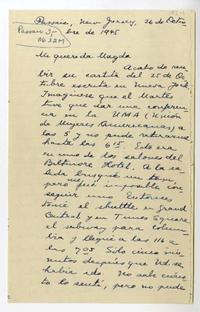 Passaic, New Jersey, 26 de Octu-
bre de 1945
Mi querida Magda
Acabo de reci-
bir su cartita del 25 de Oc-
tubre escrita en Nueva York.
Imagínese que el Martes
tuve que dar una conferen-
cia en la UMA (Unión
de Mujeres Americanas) a
las 5 y no pude retirarme
hasta las 6 15. Esto era
en uno de los salones del
Biltmore Hotel. A la sa-
lida busqué un taxi,
pero fué imposible con-
seguir uno. Entonces
tomé el shuttle en Grand
Central y en Times Square
el subway para Colum-
bia y llegué a las 116 a
las 7 05. Solo cinco mi-
nutos después que Ud. se
había ido. No sabe cuán-
to lo sentí, pero no pude